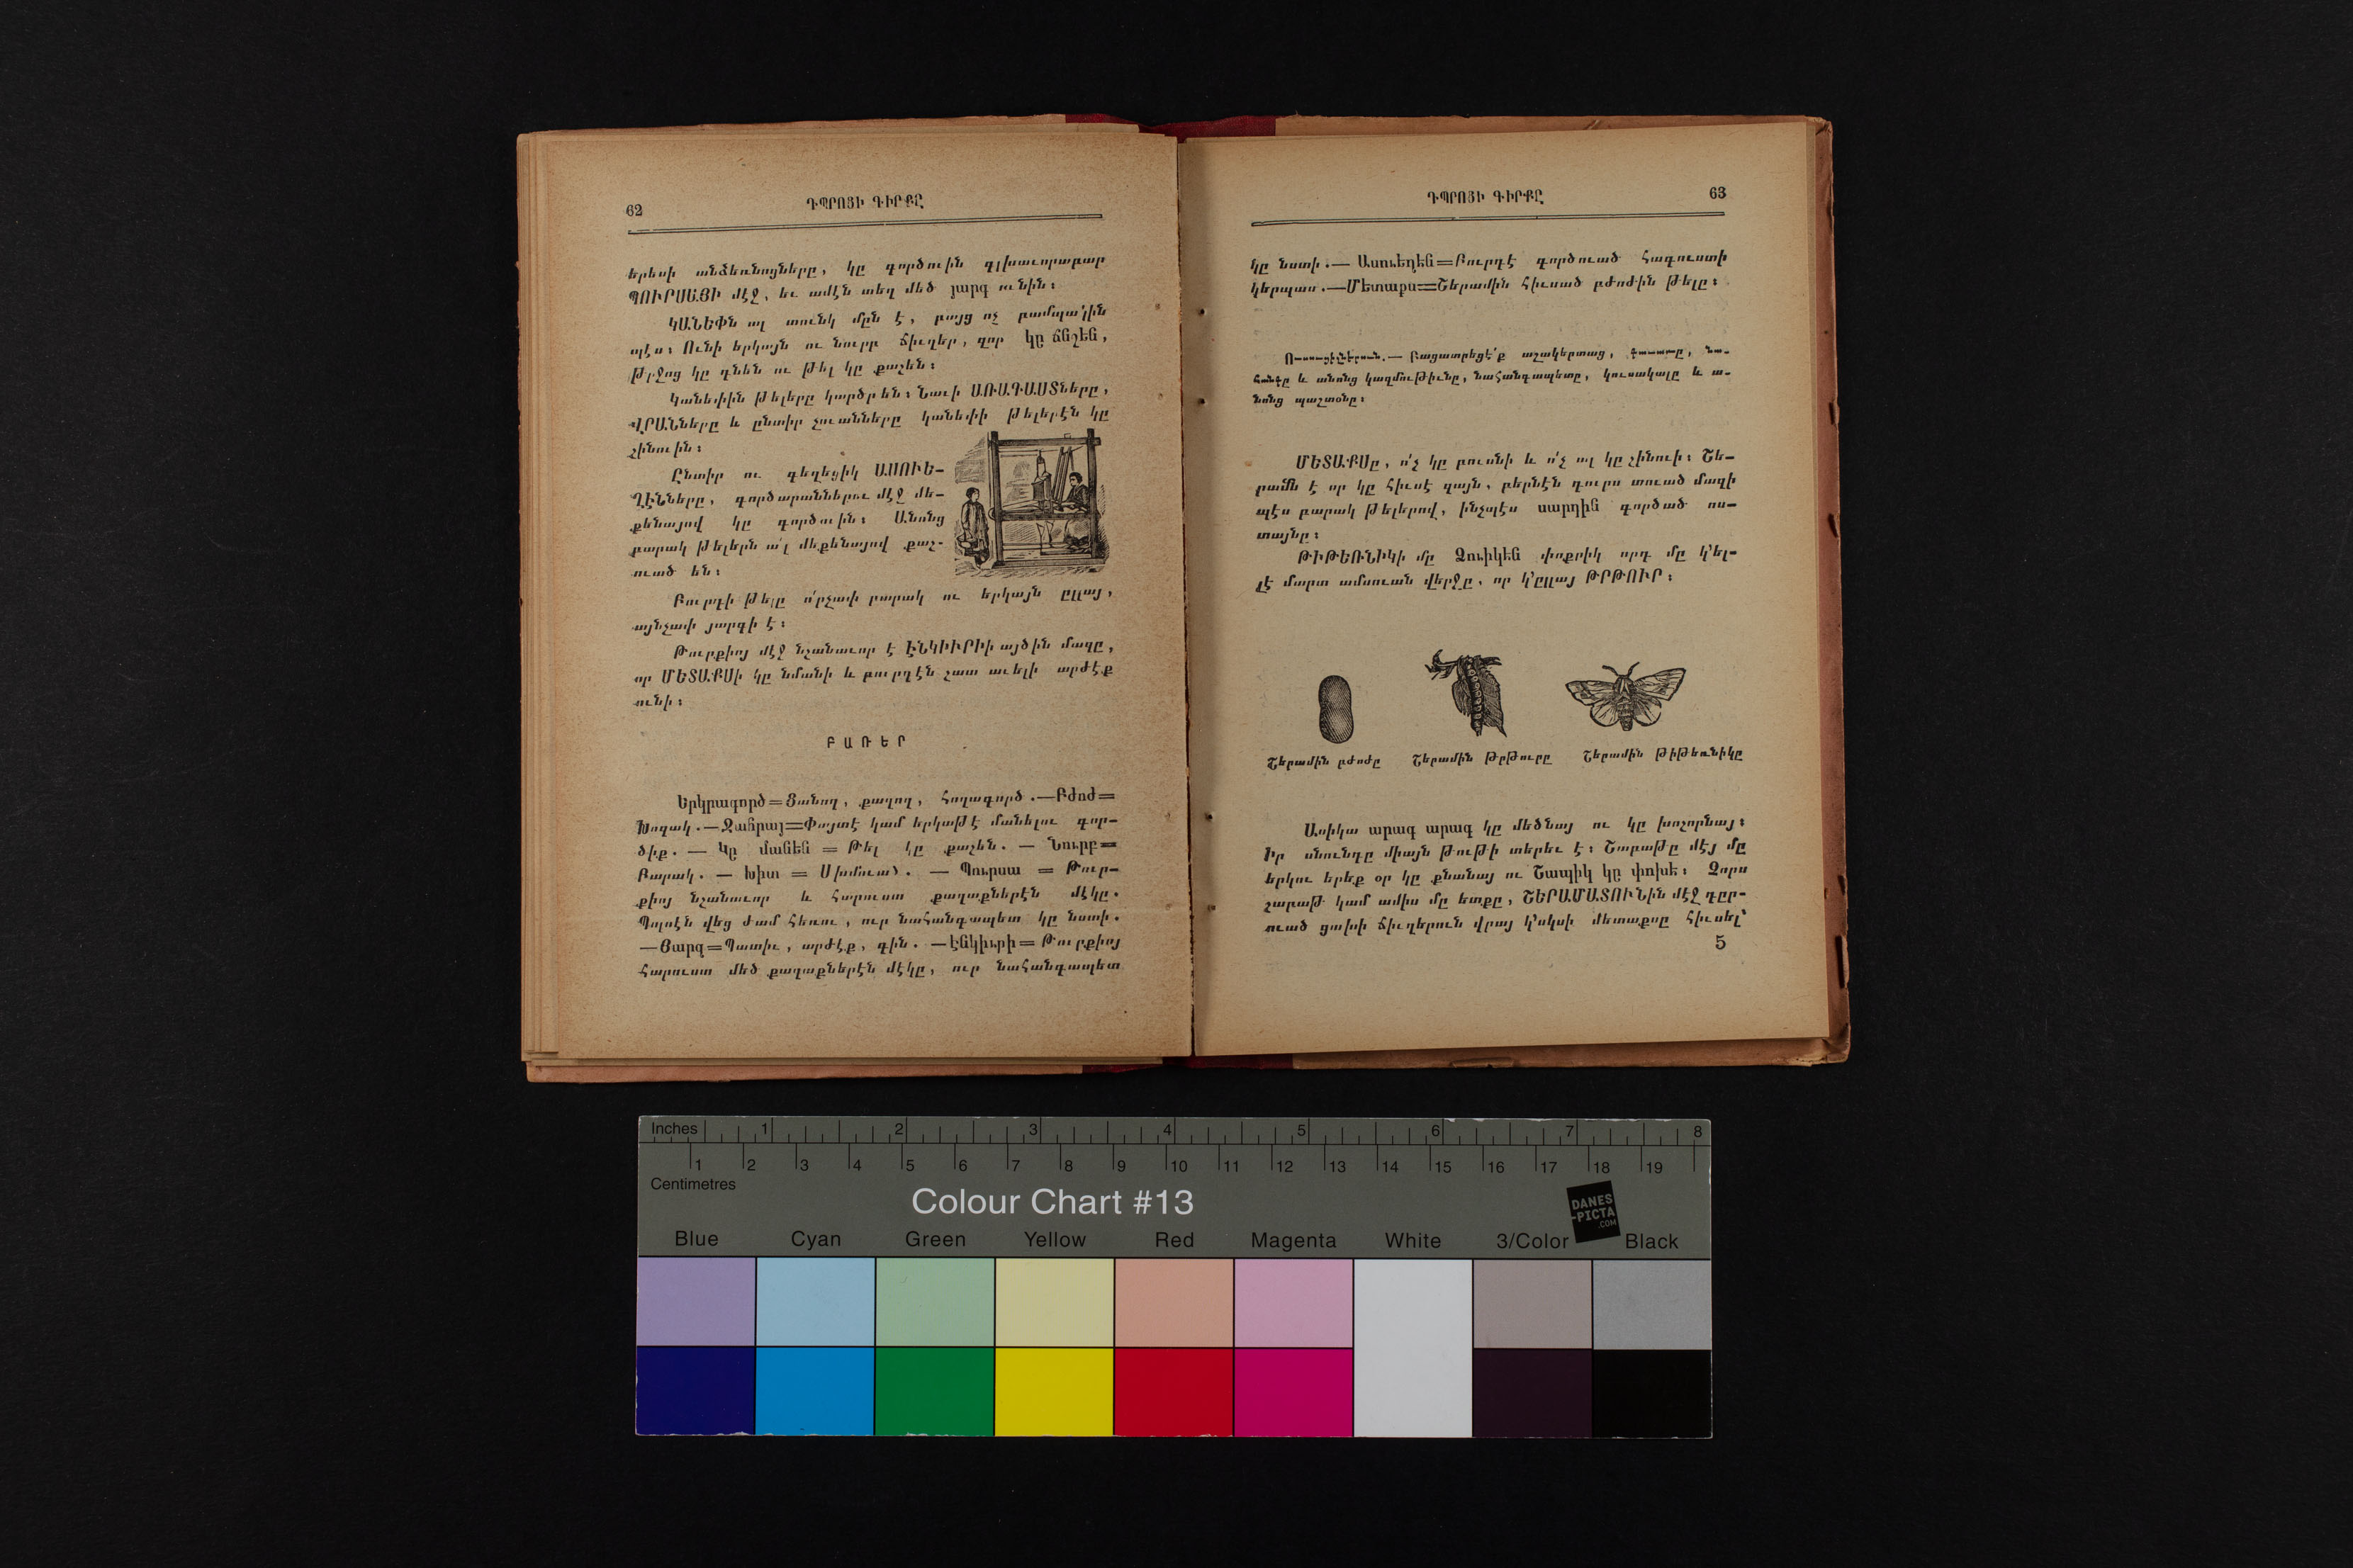 62
ԴՊՐՈՑԻ ԳԻՐՔԸ
երեսի անձեռնոցները, կը գործուին գլխաւորաբար
ՊՈՒՐՍԱՅԻ մէջ, եւ ամէն տեղ մեծ յարգ ունին։
ԿԱՆԵՓն ալ տունկ մըն է, բայց ոչ բամպա՛կին
պէս։ Ունի երկայն ու նուրբ ճիւղեր, զոր կը ճնշեն,
թրջոց կը դնեն ու թել կը քաշեն։
Կանեփին թելերը կարծր են։ Նաւի ԱՌԱԳԱՍՏները,
ՎՐԱՆները և ընտիր չուանները կանեփի թելերէն կը
շինուին։
Ընտիր ու գեղեցիկ ԱՍՈՒԵ-
ՂԷՆները, գործարաններու մէջ մե-
քենայով կը գործուին։ Անոնց
բարակ թելերն ա՛լ մեքենայով քաշ-
ուած են։
Բուրդի թելը ո՛րչափ բարակ ու երկայն ըլլայ,
այնչափ յարգի է։
Թուրքիոյ մէջ նշանաւոր է ԷՆԿԻՒՐԻի այծին մազը,
որ ՄԵՏԱՔՍի կը նմանի և բուրդէն շատ աւելի արժէք
ունի։
ԲԱՌԵՐ
Երկրագործ=Ցանող, քաղող, հողագործ.—Բժոժ=
Խոզակ.—Ջահրայ=Փայտէ կամ երկաթէ մանելու գոր-
ծիք. — Կը մանեն = Թել կը քաշեն. — Նուրբ=
Բարակ. — Խիտ = Սխմուած. — Պուրսա = Թուր-
քիոյ նշանաւոր և հարուստ քաղաքներէն մէկը.
Պոլոէն վեց ժամ հեռու, ուր նահանգապետ կը նստի.
—Յարգ=Պատիւ, արժէք, գին. —Էնկիւրի=Թուրքիոյ
հարուստ մեծ քաղաքներէն մէկը, ուր նահանգապետ
ԴՊՐՈՑԻ ԳԻՐՔԸ
63
կը նստի.— Ասուեղեն=Բուրդէ գործուած հագուստի
կերպաս.—Մետաքս=Շերամին հիւսած բժոժին թելը։
Բացատրեցէ՛ք աշակերտաց, նա-
հանգը և անոնց կազմութիւնը, նահանգապետը, կուսակալը և ա-
նոնց պաշտօնը։
ՄԵՏԱՔՍը, ո՛չ կը բուսնի և ո՛չ ալ կը շինուի։ Շե-
րամն է որ կը հիւսէ զայն, բերնէն դուրս տուած մազի
պէս բարակ թելերով, ինչպէս սարդին գործած ոս-
տայնը։
ԹԻԹԵՌՆԻԿի մը Ձուիկեն փոքրիկ որդ մը կ՚ել-
լէ մարտ ամսուան վերջը, որ կ՚ըլլայ ԹՐԹՈՒՐ։
Շերամին բժոժը
Շերամին Թրթուրը
Շերամին թիթեռնիկը
Ասիկա արագ արագ կը մեծնայ ու կը խոշորնայ։
Իր սնունդը միայն թութի տերեւ է։ Շաբաթը մէյ մը
երկու երեք օր կը քնանայ ու Շապիկ կը փոխե։ Չորս
շաբաթ կամ ամիս մը ետքը, ՇԵՐԱՄԱՏՈՒՆին մէջ դըր-
ուած ցախի ճիւղերուն վրայ կ՚սկսի մետաքսը հիւսել՝
5
Inches 1 2 3 4 5 6 7 8
1 2 3 4 5 6 7 8 9 10 11 12 13 14 15 16 17 18 19
Centimetres
Colour Chart #13
DANES
-PICTA
.COM
Blue Cyan Green Yellow Red Magenta White 3/Color Black